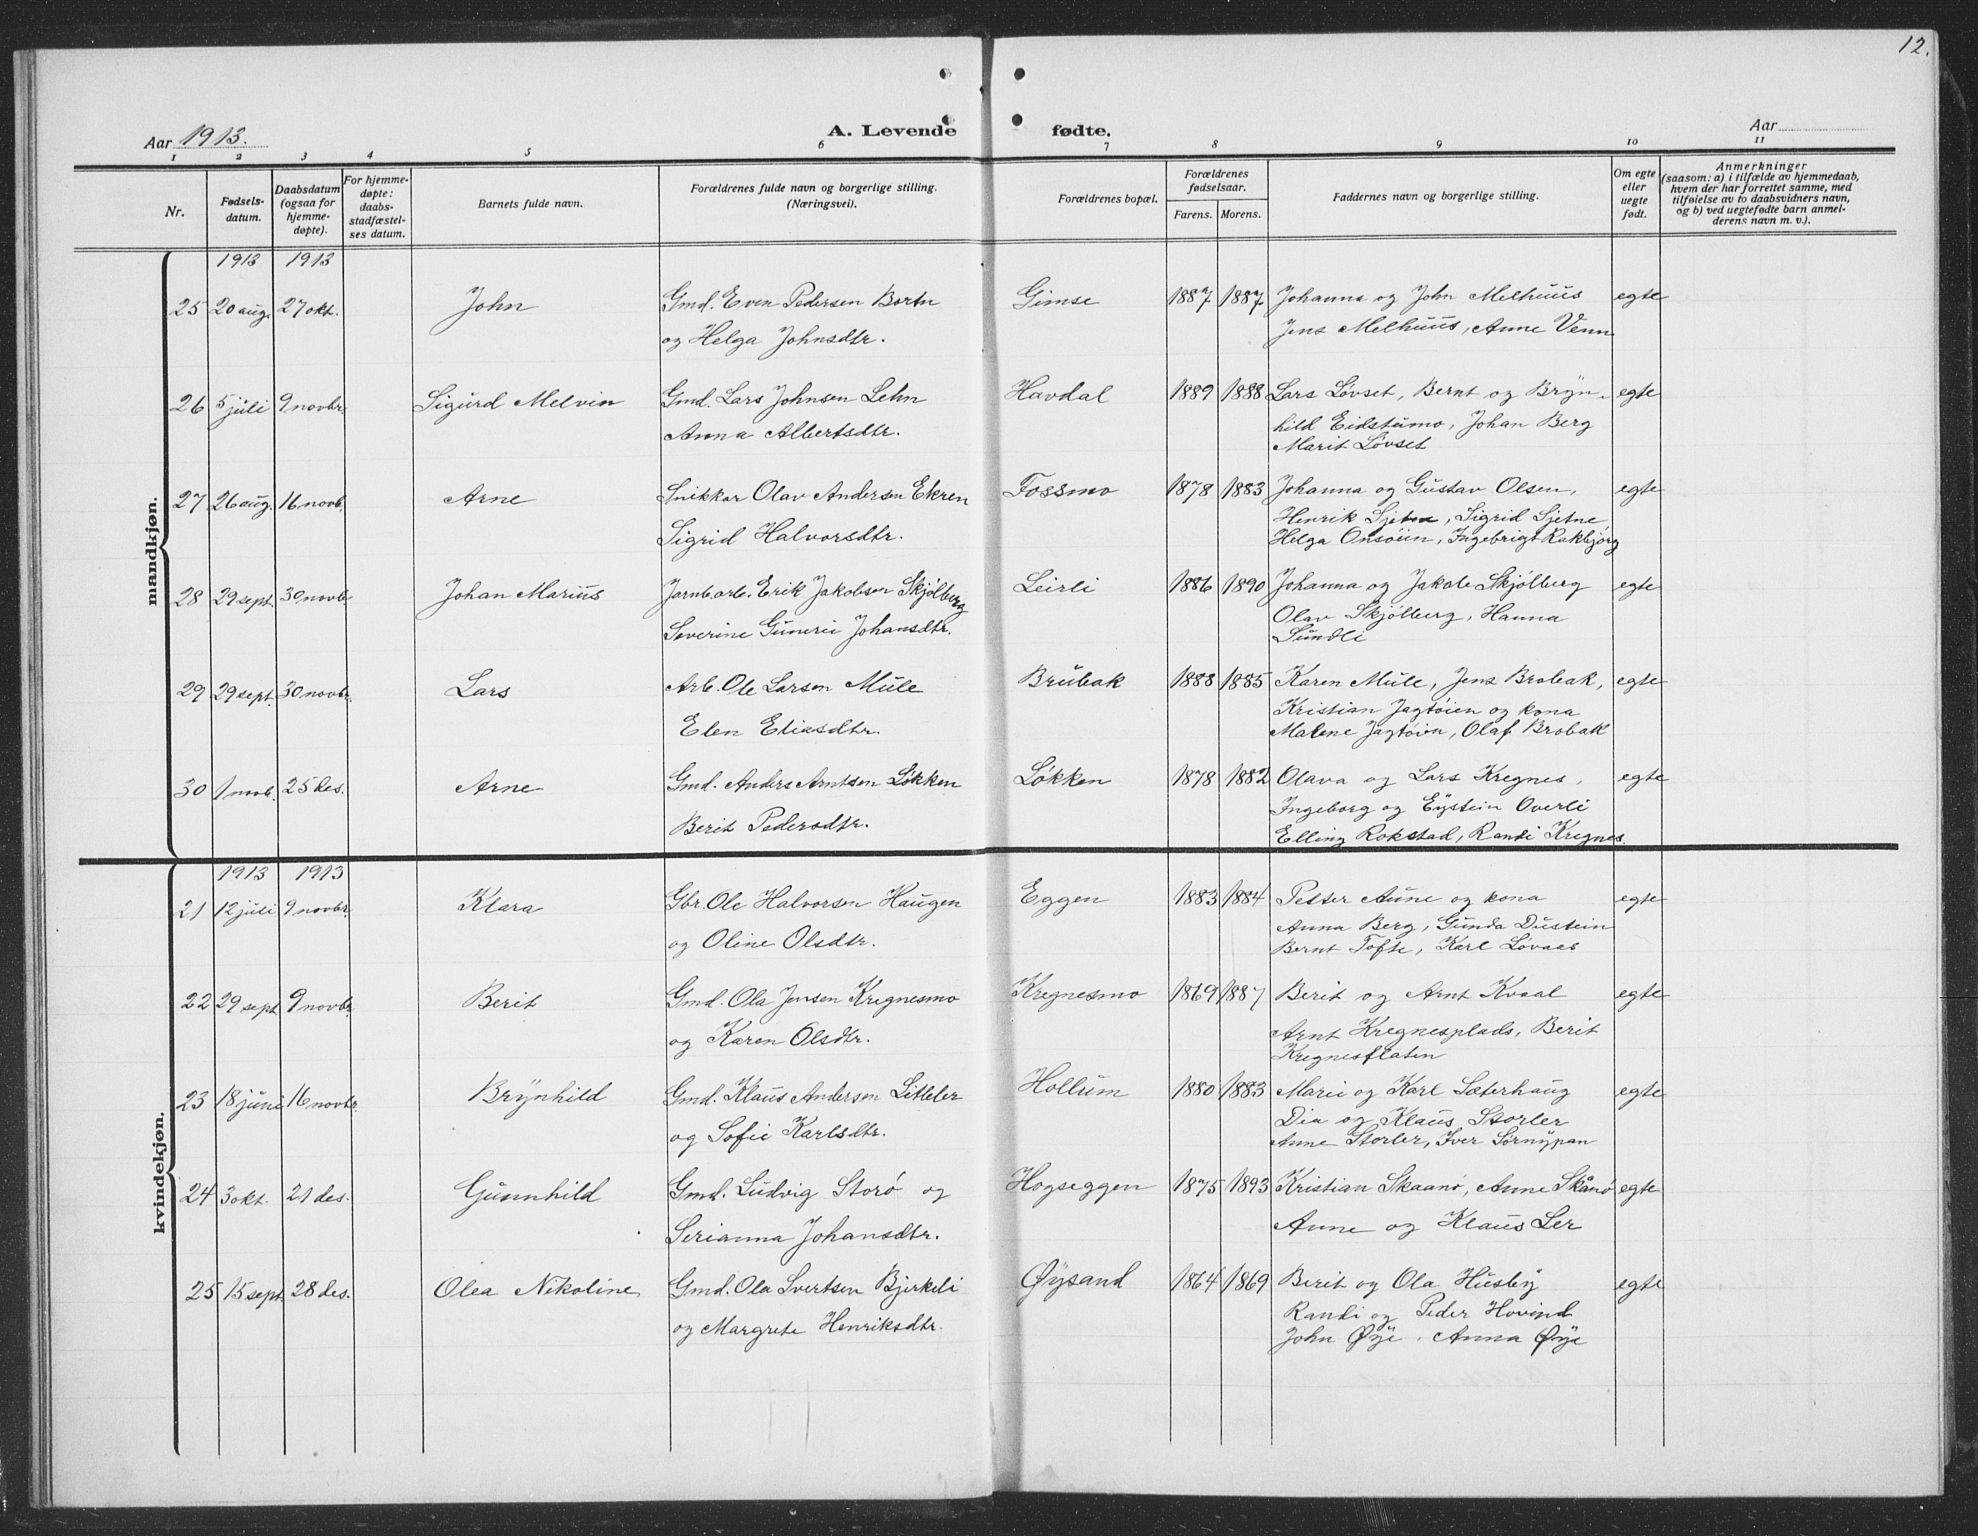 12.
Aar 1913. A. Levende fødte. Aar
1 2 3 4 5 6 7 8 9 10 11
Nr.
Fødsels-
datum.
Daabsdatum
(ogsaa for
hjemme-
døpte).
For hjemme-
døpte:
daabs-
stadfæstel-
ses datum.
Barnets fulde navn.
Forældrenes fulde navn og borgerlige stilling.
(Næringsvei).
Forældrenes bopæl.
Forældrenes
fødselsaar.
Farens. Morens.
Faddernes navn og borgerlige stilling.
Om egte
eller
uegte
født.
Anmerkninger
(saasom: a) i tilfælde av hjemmedaab,
hvem der har forrettet samme, med
tilføielse av to daabsvidners navn,
og b) ved uegtefødte barn anmel-
derens navn m. v.).
mandkjøn.
1913 1913
25 20 aug. 27 okt. John Gmd. Even Pedersen Bortn Gimse 1887 1887 Johanna og John Melhuus egte
og Helga Johnsdtr. Jens Melhuus, Anne Venn
26 5 juli 9 novbr. Sigurd Melvin Gmd. Lars Johnsen Lehn Havdal 1889 1888 Lars Løvset, Bernt og Bryn- egte
Anna Albertsdtr. hild Eidstumo, Johan Berg
Marit Løvset
27 26 aug. 16 novb. Arne Snikkar Olav Andersen Ekren Fossmo 1878 1883 Johanna og Gustav Olsen, egte
Sigrid Halvorsdtr. Henrik Sjetne, Sigrid Sjetne
Helga Onsøien, Ingebrigt Rakbjørg
28 29 sept. 30 novbr. Johan Marius Jarnb.arb. Erik Jakobsen Skjølberg Leirli 1886 1890 Johanna og Jakob Skjølberg egte
Severine Gunerie Johansdtr. Olav Skjølberg, Hanna
Sundli
29 29 sept. 30 novbr. Lars Arb. Ole Larsen Mule Brubak 1888 1885 Karen Mule, Jens Brobak, egte
Elen Eliasdtr. Kristian Jagtøien og kona
Malene Jagtøien, Olaf Brobak
30 1 novb. 25 des. Arne Gmd. Anders Arntsen Løkken Løkken 1878 1882 Olava og Lars Kregnes, egte
Berit Pedersdtr. Ingeborg og Eystein Overli
Elling Rokstad, Randi Kregnes.
kvindekjøn.
1913 1913
21 12 juli 9 novbr. Klara Gbr. Ole Halvorsen Haugen Eggen 1883 1884 Petter Aune og kona egte
og Oline Olsdtr. Anna Berg, Gunda Dustein
Bernt Tofte, Karl Løvaas
22 29 sept 9 novbr. Berit Gmd. Ola Jensen Kregnesmo Kregnesmo 1869 1887 Berit og Arnt Kvaal egte
og Karen Olsdtr. Arnt Kregnesplads, Berit
Kregnesflaten
23 18 juni 16 novbr. Brynhild Gmd. Klaus Andersen Litleler Hollum 1880 1883 Marie og Karl Sæterhaug egte
og Sofie Karlsdtr. Dia og Klaus Storler
Anne Storler, Iver Sørnypan
24 3 okt. 21 des. Gunnhild Gmd. Ludvig Storø og Hogseggen 1875 1893 Kristian Skaanø, Anne Skånø egte
Serianna Johansdtr. Anne og Klaus Ler
25 15 sept. 28 des. Olea Nikoline Gmd. Ola Svertsen Bjerkeli Øysand 1864 1869 Berit og Ola Husby egte
og Margrete Henriksdtr. Randi og Peder Hovind
John Øye, Anna Øye